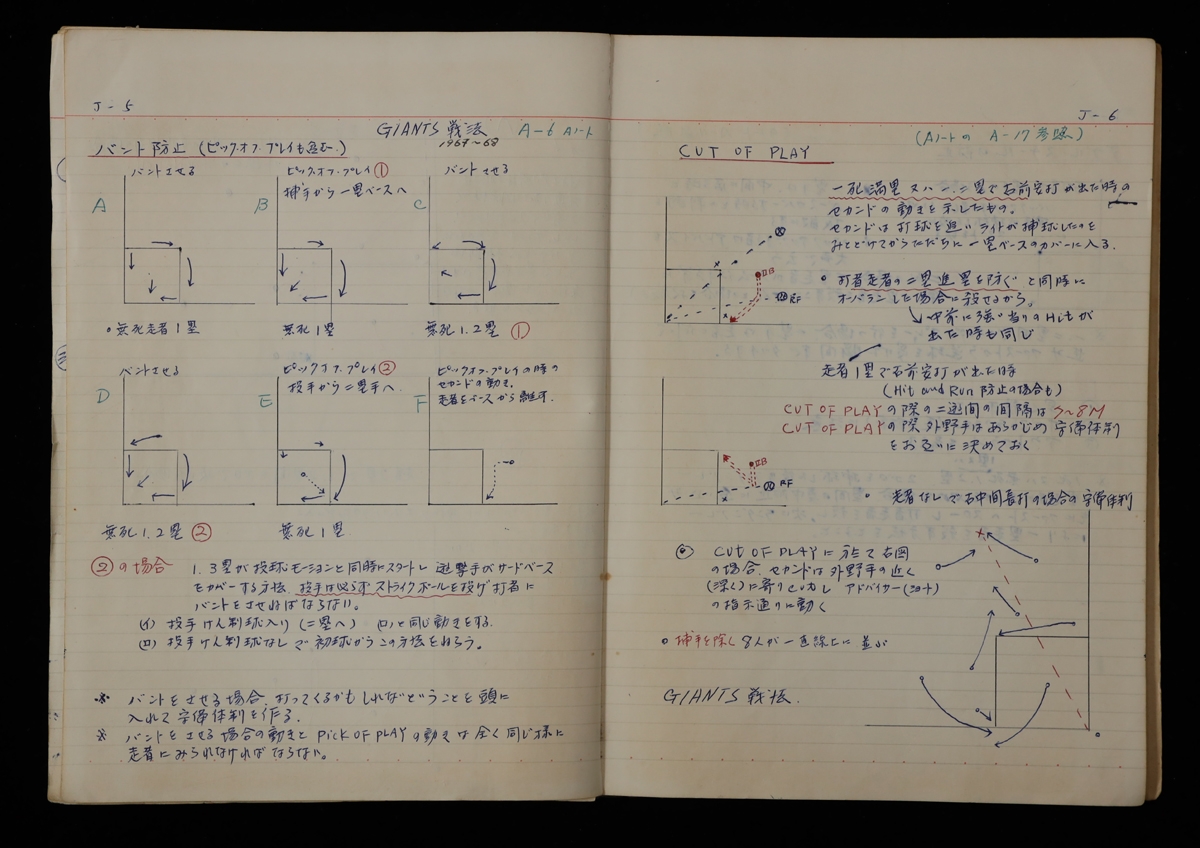 J-5
GIANTS 戦法 A-6 Aノート
1967～68
バント防止 (ピックオフ・プレイも含む.)
バントさせる
A
○無死走者1塁
ピックオフ・プレイ①
捕手から一塁ベースへ
B
無死1塁
バントさせる
C
無死1.2塁 ①
バントさせる
D
無死1.2塁 ②
ピックオフ・プレイ②
投手から二塁手へ.
E
無死1塁
ピックオフ・プレイの時の
セカンドの動き.
走者をベースから離す.
F
②の場合 1.3塁が投球モーションと同時にスタートし 遊撃手がサードベース
をカバーする方法. 投手は必らずストライクボールを投げ打者に
バントをさせねばならない。
(イ) 投手けん制球入り (二塁へ) (ロ)と同じ動きをする.
(ロ) 投手けん制球なしで初球からこの方法をねらう。
※ バントをさせる場合.打ってくるかもしれないということを頭に
入れて守備体制を作る.
※ バントをさせる場合の動きと PICK OF PLAYの動きは全く同じ様に
走者にみられなければならない。
J-6
(Aノートの A-17参照)
CUT OF PLAY
一死満塁 又ハ 一.二塁で右前安打が出た時の
セカンドの動きを示したもの。
セカンドは打球を追いライトが捕球したのを
みとどけてからただちに一塁ベースのカバーに入る.
○ 打者走者の二塁進塁を防ぐと同時に
オーバランした場合に殺せるから。
中前に強い当りのHitが
出た時も同じ
ⅡB
RF
走者1塁で右前安打が出た時
(Hit and Run 防止の場合も)
CUT OF PLAYの際の二遊間の間隔は 7～8M
CUT OF PLAYの際外野手はあらかじめ守備体制
をお互いに決めておく
ⅡB
RF
○ 走者なしで右中間長打の場合の守備体制
◎ CUT OF PLAYに於て右図
の場合.セカンドは外野手の近く
(深く)に寄りCUTし アドバイザー(ショート)
の指示通りに動く
○ 捕手を除く8人が一直線上に並ぶ
GIANTS 戦法.